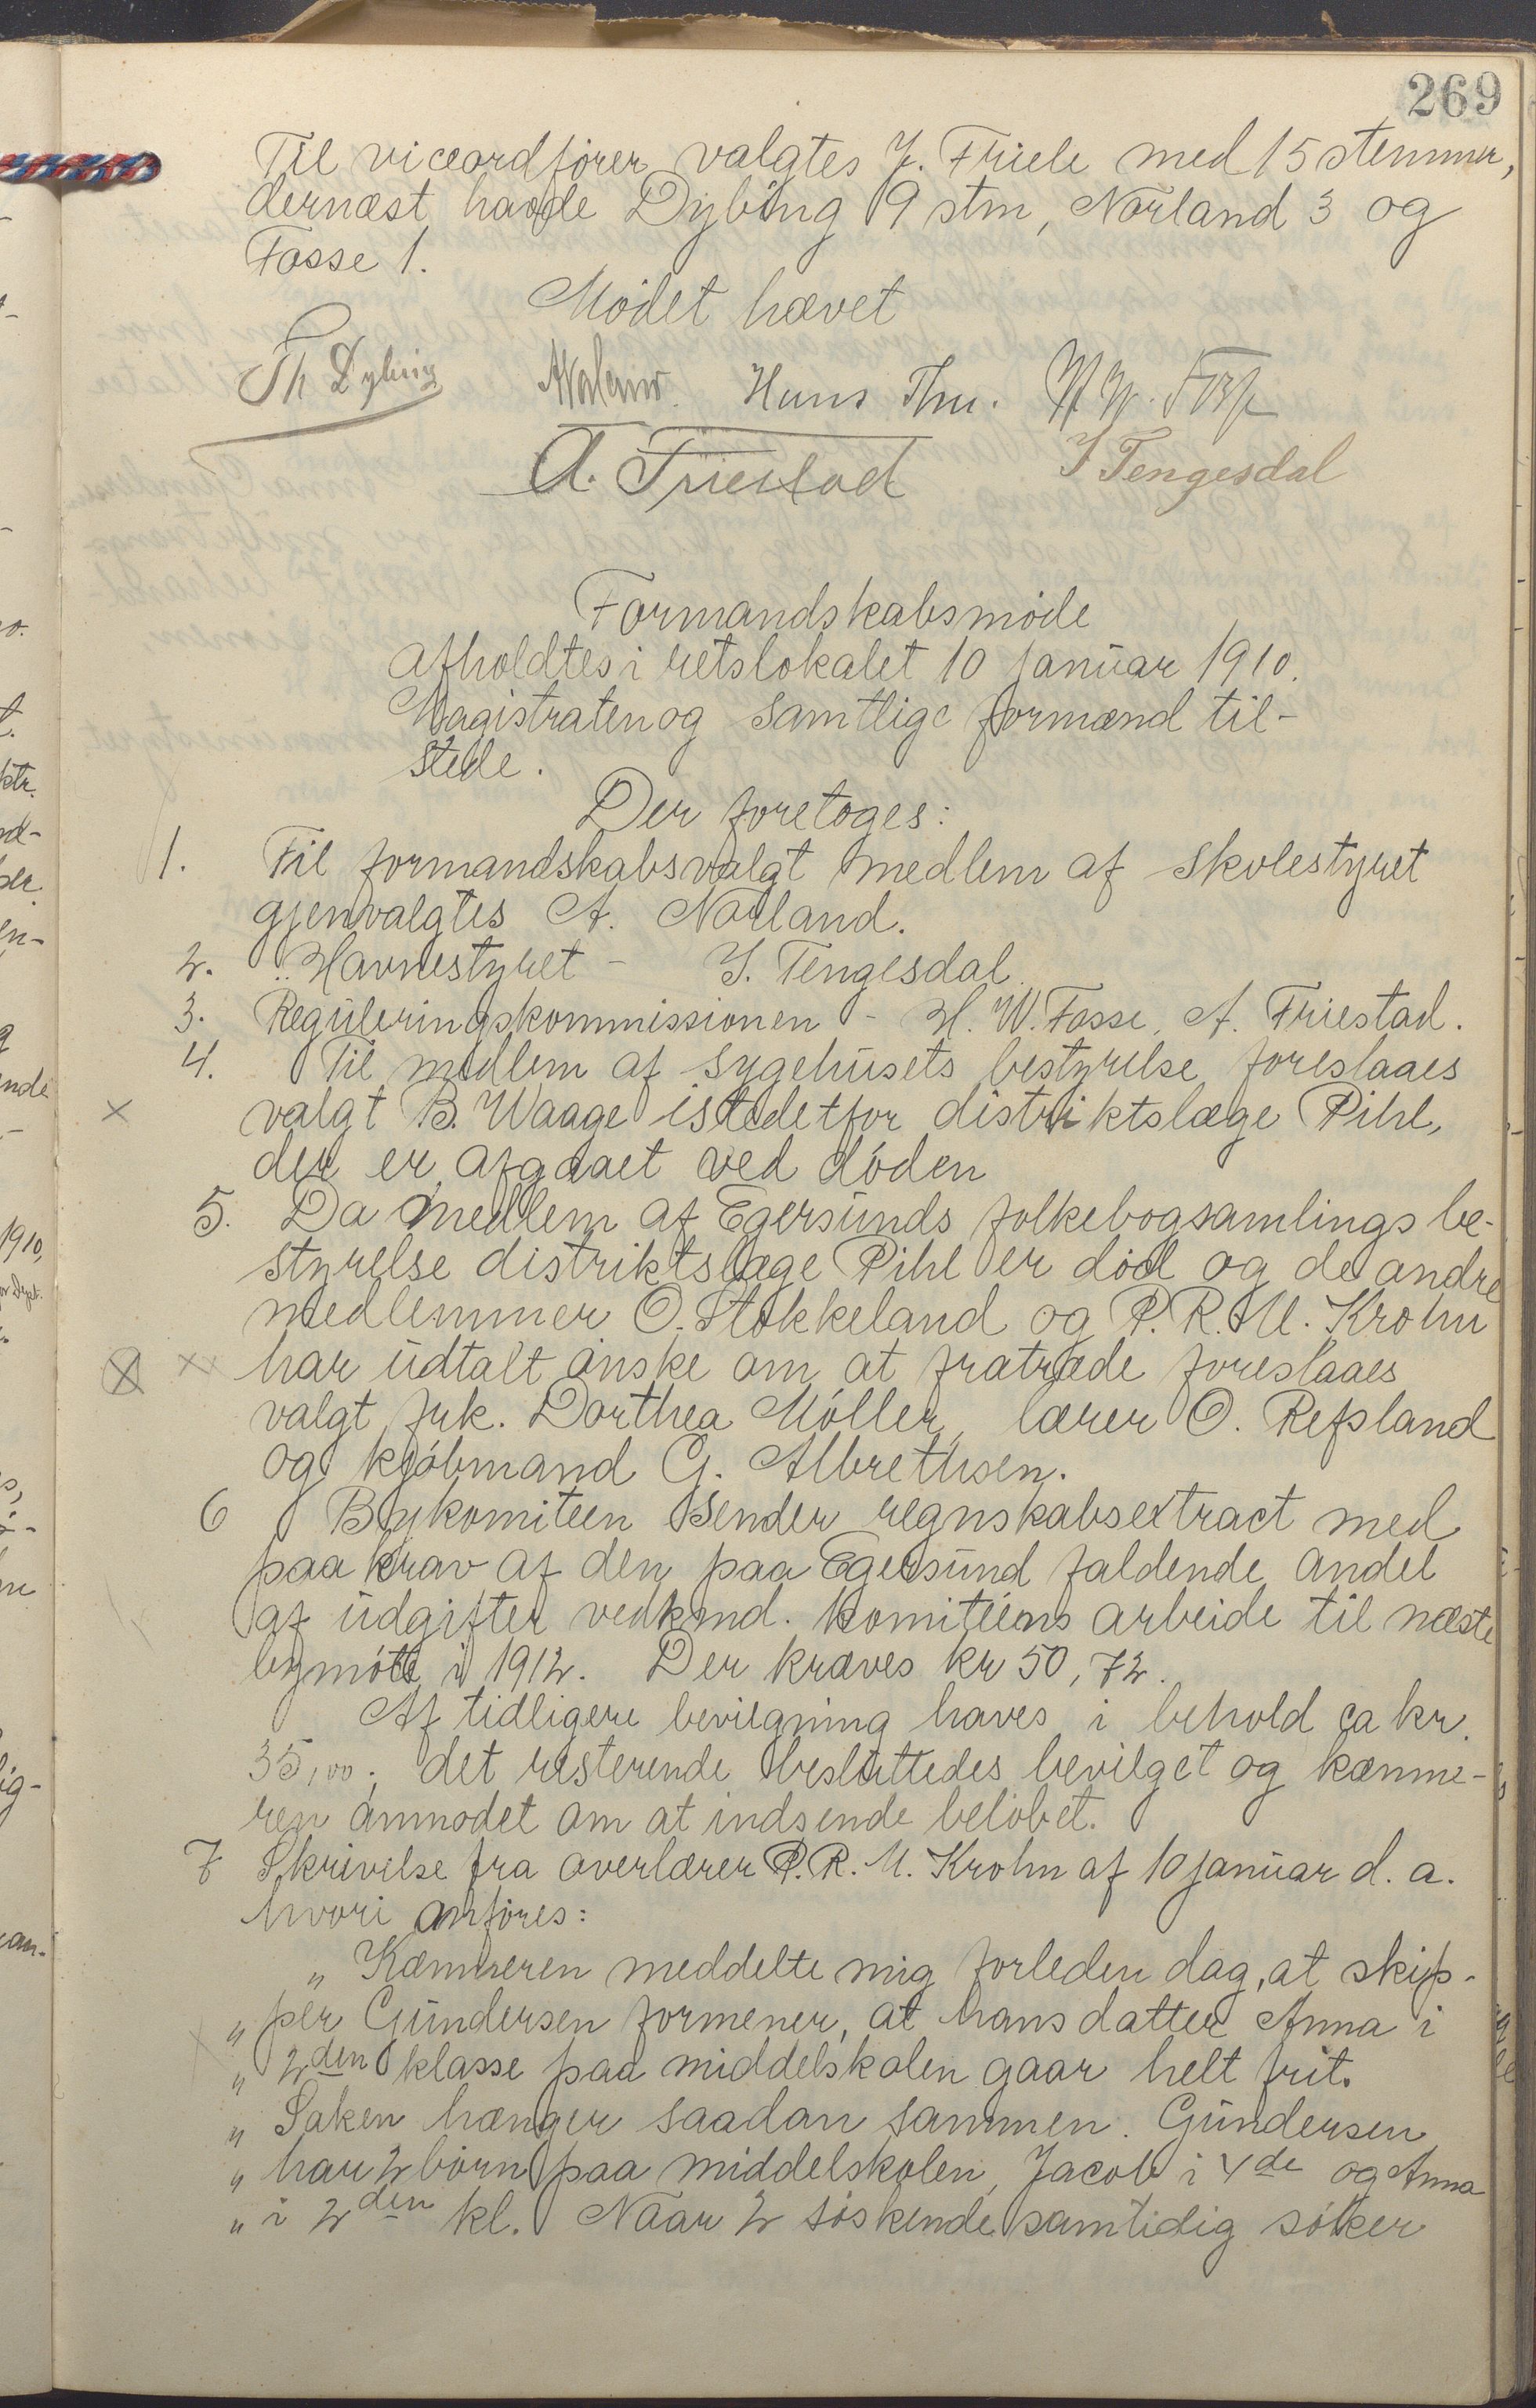 269
Til viceordfører valgtes J. Friele med 15 stemmer,
dernæst havde Dybing 9 stm, Nørland 3 og
Fosse 1.
Mødet hævet
Th Dybing Hans Thu. H W. Foss
A. Friestad J Tengesdal
Formandskabsmøde
afholdtes i retslokalet 10 januar 1910.
Magistraten og samtlige formænd til-
stede.
Der foretoges:
1. Til formandskabsvalgt medlem af skolestyret
gjenvalgtes A. Nørland.
2. " Havnestyret - J. Tengesdal.
3. Reguleringskommissionen - H. W. Fosse, A. Friestad.
4. Til medlem af sygehusets bestyrelse foreslaaes
valgt B. Waage istedetfor distriktslæge Pihl,
der er afgaaet ved døden
5. Da medlem af Egersunds folkebogsamlings be-
styrelse distriktslæge Pihl er død og de andre
medlemmer O. Stokkeland og P. R. M. Krohn
har udtalt ønske om at fratræde foreslaaes
valgt frk. Dorthea Møller, lærer O. Refsland
og kjøbmand G. Albrethsen.
6 Bykomiteen sender regnskabsextract med
paakrav af den paa Egersund faldende andel
af udgifter vedkmd. komitéens arbeide til næste
bymøte i 1912. Der kræves kr 50,72.
Af tidligere bevilgning haves i behold ca kr.
35,00; det resterende besluttedes bevilget og kæmne-
ren anmodet om at indsende beløbet.
7 Skrivelse fra overlærer P. R. M. Krohn af 10 januar d. a.
hvori anføres:
" Kæmneren meddelte mig forleden dag, at skip-
" per Gundersen formener, at hans datter Anna i
" 2den klasse paa middelskolen gaar helt frit.
" Saken hænger saadan sammen. Gundersen
" har 2 børn paa middelskolen, Jacob i 4de og Anna
" i 2den kl. Naar 2 søskende samtidig søker